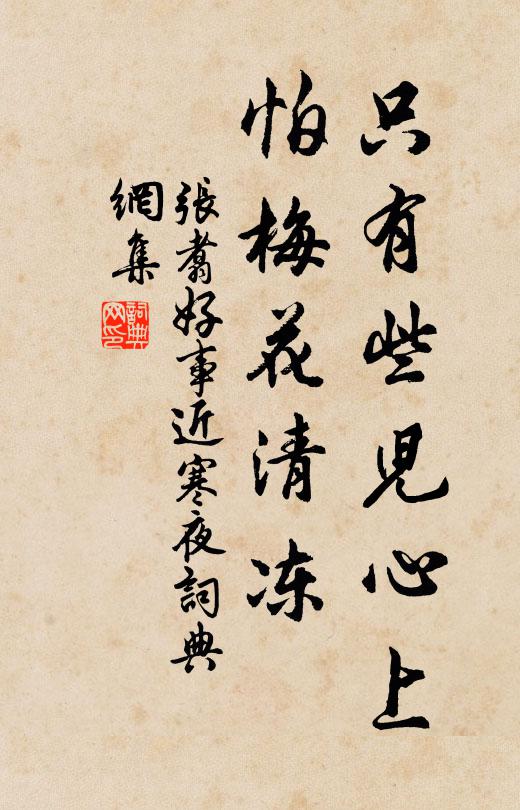 只有些児心上
怕梅花清冻
張翥好事近寒夜詞典
網集
詞典
网印